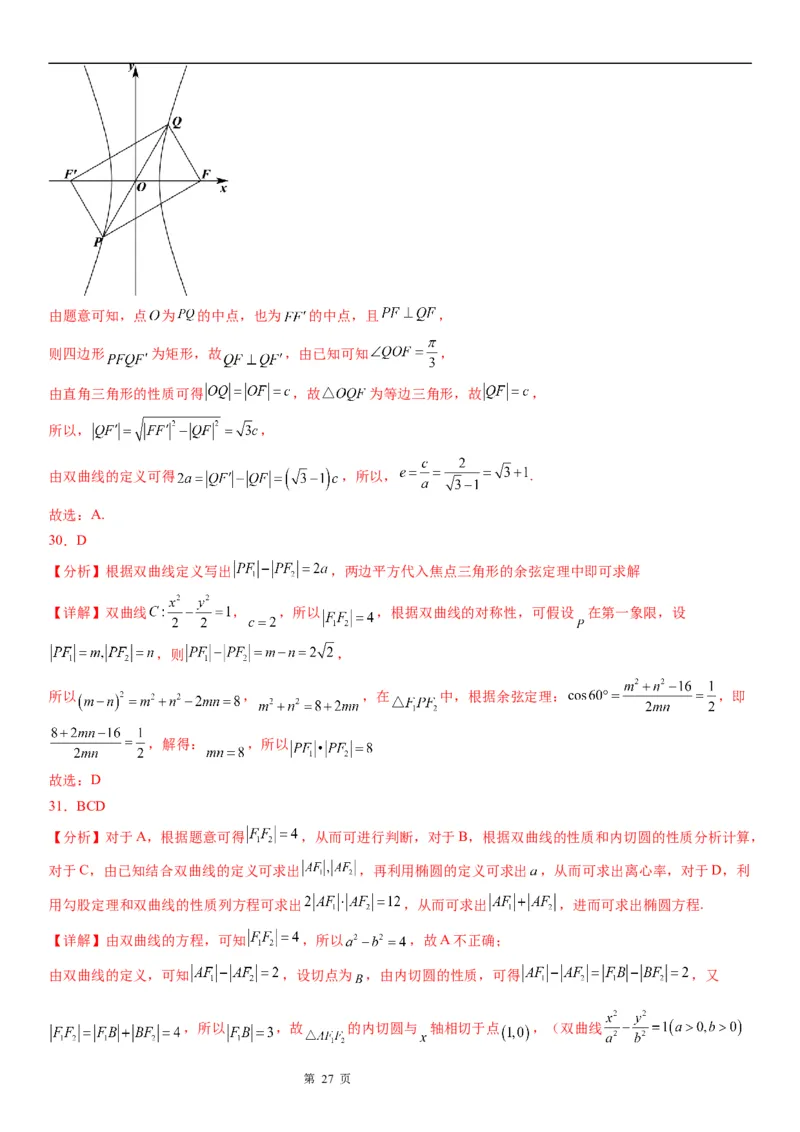 y
Q
F′ O F x
P
由题意可知，点O为PQ的中点，也为FF′的中点，且PF⊥QF，
则四边形PFQF′为矩形，故QF⊥QF′，由已知可知∠QOF=π/3，
由直角三角形的性质可得|OQ|=|OF|=c，故△OQF为等边三角形，故|QF|=c，
所以，|QF′|=√(|FF′|²−|QF|²)=√3c，
由双曲线的定义可得2a=|QF′|−|QF|=(√3−1)c，所以，e=c/a=2/(√3−1)=√3+1.
故选：A.
30．D
【分析】根据双曲线定义写出|PF₁|−|PF₂|=2a，两边平方代入焦点三角形的余弦定理中即可求解
【详解】双曲线C:x²/2−y²/2=1，c=2，所以|F₁F₂|=4，根据双曲线的对称性，可假设P在第一象限，设
|PF₁|=m,|PF₂|=n，则|PF₁|−|PF₂|=m−n=2√2，
所以(m−n)²=m²+n²−2mn=8，m²+n²=8+2mn，在△F₁PF₂中，根据余弦定理：cos60°=(m²+n²−16)/2mn=1/2，即
(8+2mn−16)/2mn=1/2，解得：mn=8，所以|PF₁|•|PF₂|=8
故选：D
31．BCD
【分析】对于A，根据题意可得|F₁F₂|=4，从而可进行判断，对于B，根据双曲线的性质和内切圆的性质分析计算，
对于C，由已知结合双曲线的定义可求出|AF₁|,|AF₂|，再利用椭圆的定义可求出a，从而可求出离心率，对于D，利
用勾股定理和双曲线的性质列方程可求出2|AF₁|·|AF₂|=12，从而可求出|AF₁|+|AF₂|，进而可求出椭圆方程.
【详解】由双曲线的方程，可知|F₁F₂|=4，所以a²−b²=4，故A不正确；
由双曲线的定义，可知|AF₁|−|AF₂|=2，设切点为B，由内切圆的性质，可得|AF₁|−|AF₂|=|F₁B|−|BF₂|=2，又
|F₁F₂|=|F₁B|+|BF₂|=4，所以|F₁B|=3，故△AF₁F₂的内切圆与x轴相切于点(1,0)，（双曲线x²/a²−y²/b²=1(a>0,b>0)
第 27 页